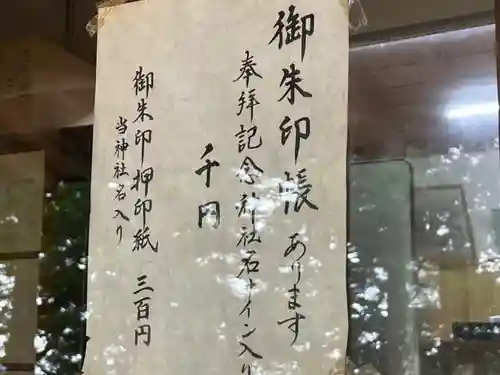 御朱印帳あります
奉拝記念神社名サイン入り
千円
御朱印押印紙 三百円
当神社名入り